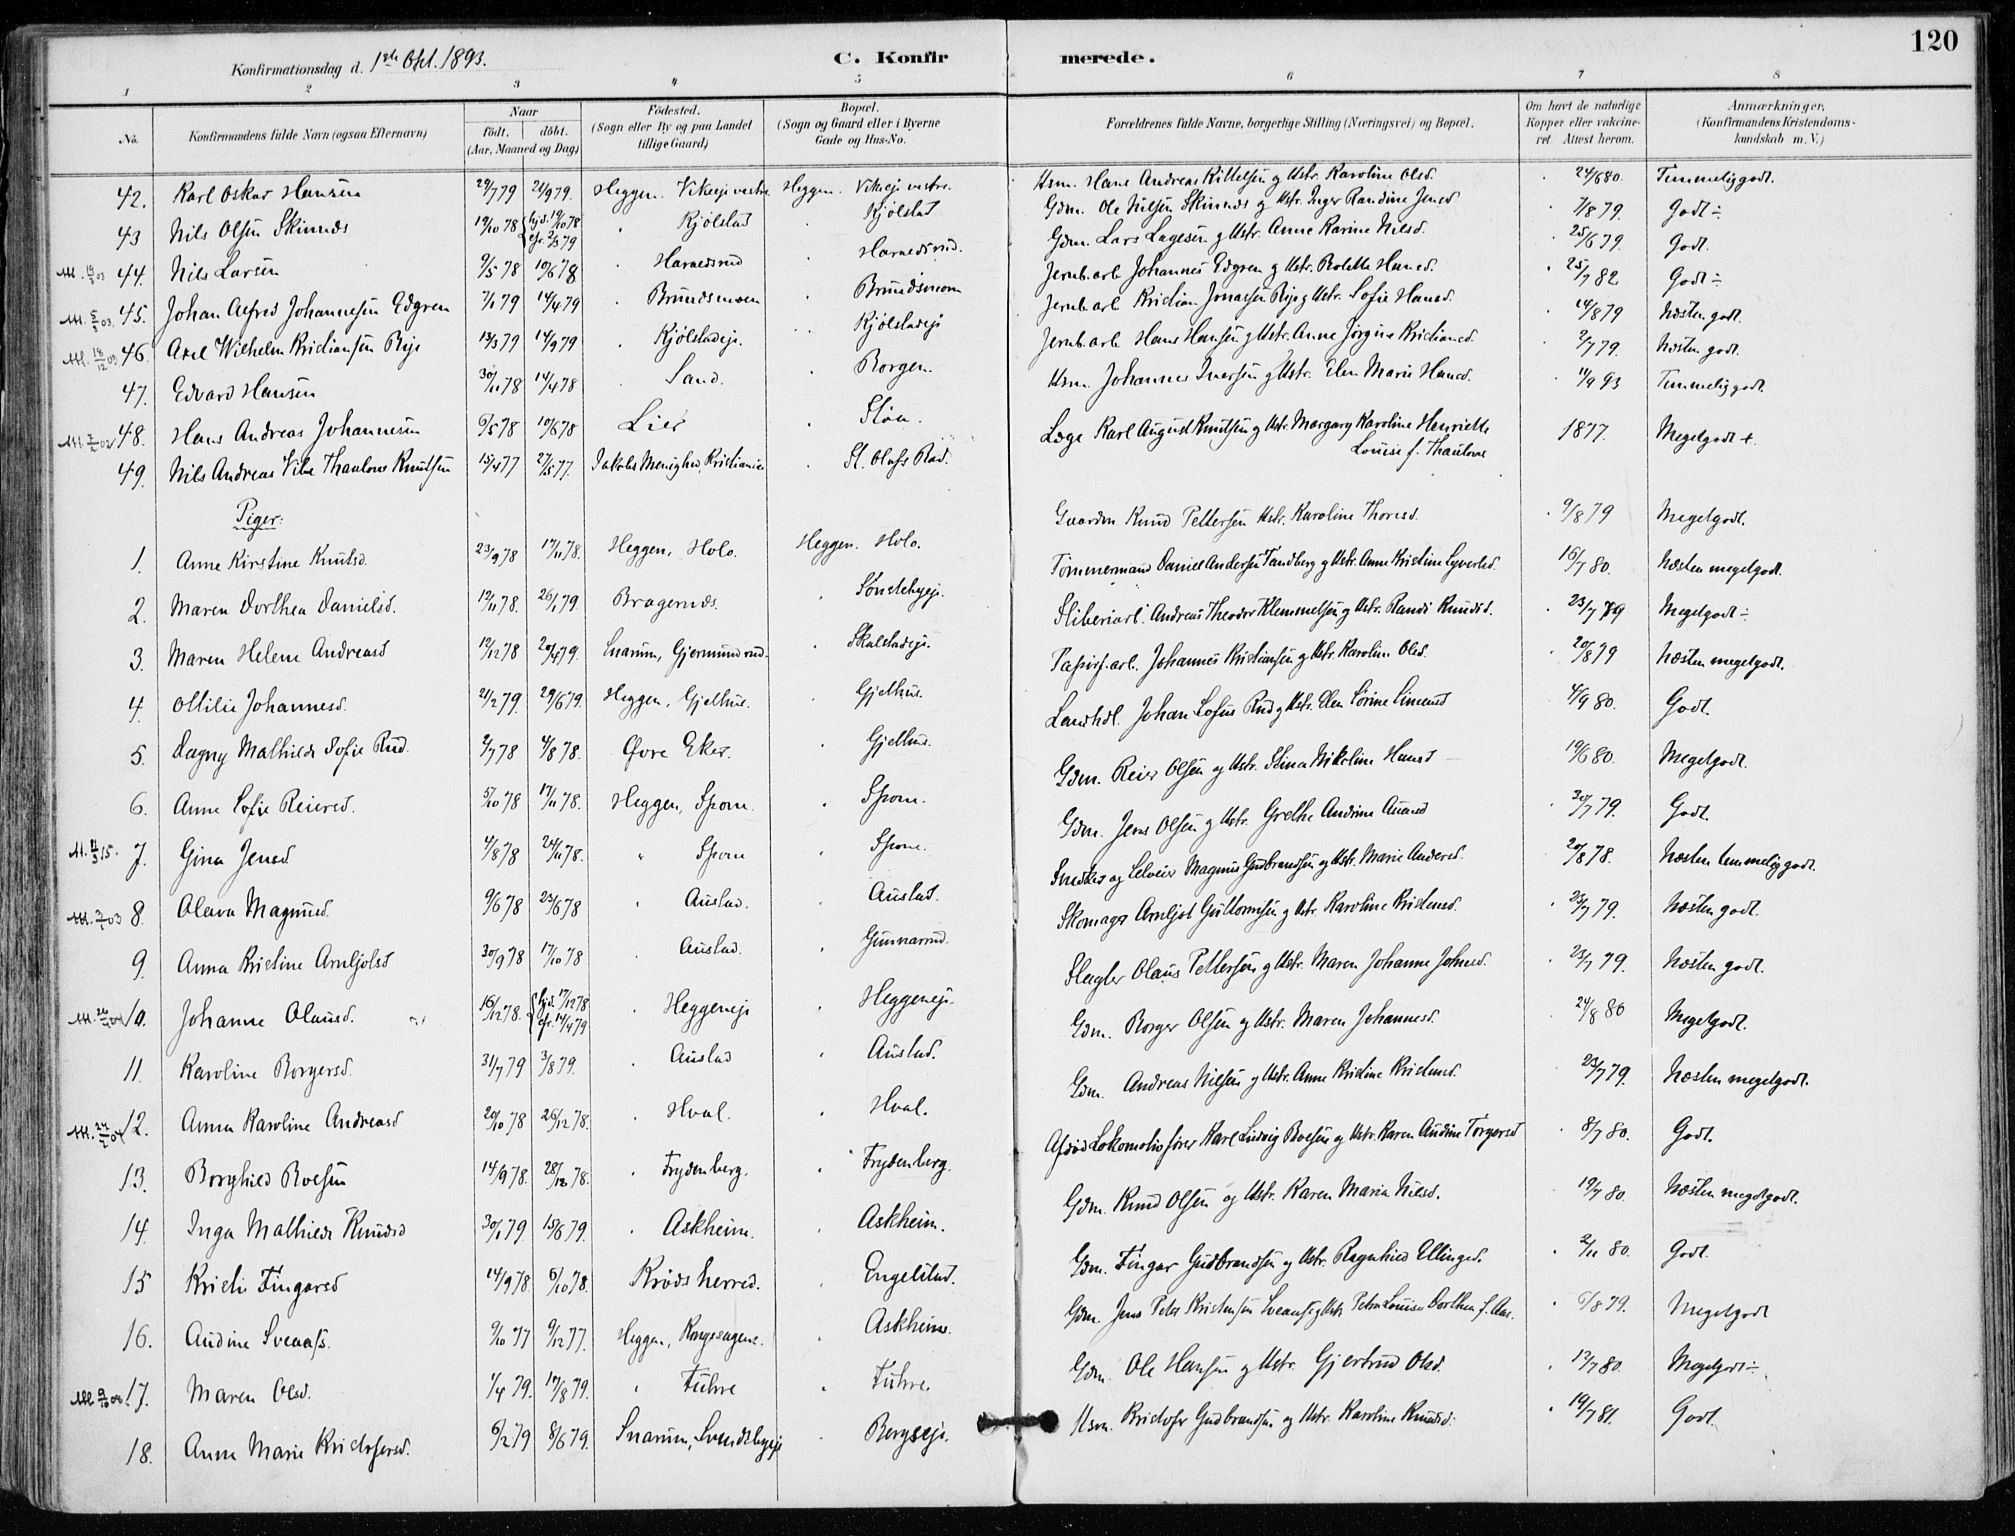 120
Konfirmationsdag d. 1ste Okt. 1893.
C. Konfirmerede.
1 2 3 4 5 6 7 8
No. | Konfirmandens fulde Navn (ogsaa Efternavn) | Naar födt. döbt. (Aar, Maaned og Dag) | Födested. (Sogn eller By og paa Landet tillige Gaard) | Bopæl. (Sogn og Gaard eller i Byerne Gade og Hus-No. | Forældrenes fulde Navne, borgerlige Stilling (Næringsvei) og Bopæl. | Om havt de naturlige Kopper eller vakcineret. Attest herom. | Anmærkninger, (Konfirmandens Kristendomskundskab m. V.)
42. Karl Oskar Hansen 29/7 79 21/9 79. Heggen. Vikeje vestre Heggen. Vikeje vestre. Hsm. Hans Andreas Kittelsen og Hstr. Karoline Olsd. 24/6 80. Temmelig godt.
43 Nils Olsen Skinnes 19/10 78 hjd. 19/10 78 efr. 2/3 79 " Kjölstad " Kjölstad Gdm. Ole Nilsen Skinnes og Hstr. Inger Randine Jensd. 7/8 79. Godt ÷
44. Nils Larsen 9/5 78 10/6 78 " Haraldsrud " Haraldsrud. Gdm. Lars Lagesen og Hstr. Anne Karine Nilsd. 25/6 79. Godt.
45. Johan Alfred Johannesen Edgren 7/1 79 14/4 79 " Brundsmoen " Brundsmoen Jernb.arb. Johannes Edgren og Hstr. Bolette Hansd. 25/7 82 Godt ÷
46. Axel Wilhelm Kristiansen Bye 13/3 79 14/9 79 " Kjölstadeje. " Kjölstadeje Jernb.arb. Kristian Jonassen Bye og Hstr. Sofie Hansd. 14/8 79 Næsten godt.
47. Edvard Hansen 30/11 78 14/4 78 " Sand. " Borgen. Jernb.arb. Hans Hansen og Hstr. Anne Jörgine Kristiansd. 2/7 79. Næsten godt.
48. Hans Andreas Johannesen 6/5 78 10/6 78 Lier " Stöa. Hsm. Johannes Iversen og Hstr. Elen Marie Hansd. 11/9 93 Temmelig godt.
49. Nils Andreas Vibe Thaulow Knutsen 15/4 77 27/5 77. Jakobs Menighed, Kristiania " St. Olafs Bad. Læge Karl August Knutsen og Hstr. Margary Karoline Henriette Louise f. Thaulow 1877. Meget godt +.
Piger:
1. Anne Kirstine Knutsd. 23/9 78 17/11 78. Heggen, Hole. Heggen. Hole. Gaardm. Knud Pettersen Hstr. Karoline Thoresd. 9/8 79 Meget godt.
2. Maren Dorthea Danielsd. 12/11 78. 26/1 79. Bragernæs. " Sönstebyeje. Tömmermand Daniel Andersen Tandberg og Hstr. Anne Kristine Syversd. 16/7 80. Næsten meget godt.
3. Maren Helene Andreasd 12/12 78 20/4 79. Snarum, Gjermundrud. " Skalstadeje. Sliberiarb. Andreas Theodor Klemmetsen og Hstr. Randi Knudsd. 23/7 79 Meget godt ÷
4. Ottilie Johannesd. 21/2 79. 29/6 79. Heggen, Gjethus. " Gjethus. Papirf.arb. Johannes Kristiansen og Hstr. Karoline Olsd. 20/8 79 Næsten meget godt.
5. Dagny Mathilde Sofie Rud. 2/7 78 4/8 78. Övre Eker. " Gjethus. Landhdl. Johan Sofus Rud og Hstr. Elen Sörine Simensd 4/9 80. Godt.
6. Anne Sofie Reiersd. 5/10 78 17/11 78. Heggen, Spone. " Spone. Gdm. Reier Olsen og Hstr. Stina Nikoline Hansd 19/6 80. Meget godt.
7. Gina Jensd 4/8 78 24/11 78. " Spone " Spone. Gdm. Jens Olsen og Hstr. Grethe Andrine Amund 30/7 79. Godt.
8. Oleva Magnusd. 9/6 78 23/6 78 " Austad. " Austad. Snedker og Selveier Magnus Gudbrandsen og Hstr. Marie Andersd. 20/8 78. Næsten temmelig godt.
9. Anna Kristine Arnljotsd 30/9 78 17/10 78 " Austad. " Gunnarrud. Skomager Arnljot Guttormsen og Hstr. Karoline Kristensd. 23/7 79. Næsten godt.
10. Johanne Olausd. 16/12 78. hjd. 17/12 78 efr. 14/4 79 " Heggeneje " Heggeneje. Slagter Olaus Pettersen og Hstr. Maren Johanne Johnsd. 23/7 79. Næsten godt.
11. Karoline Borgersd. 31/7 79 3/8 79. " Austad " Austad. Gdm. Borger Olsen og Hstr. Maren Johannesd. 24/8 80 Meget godt.
12. Anna Karoline Andreasd 20/10 78 26/12 78. " Hval. " Hval. Gdm. Andreas Nilsen og Hstr. Anne Kristine Kristensd. 23/7 79. Næsten meget godt.
13. Borghild Boesen 14/9 78. 28/12 78. " Frydenberg. " Frydenberg. Afdöd Lokomotivförer Karl Ludvig Boesen og Hstr. Karen Andine Torgersd 8/7 80. Godt.
14. Inga Mathilde Knudsd 30/1 79. 15/6 79. " Askheim. " Askheim. Gdm. Knud Olsen og Hstr. Karen Maria Nilsd. 19/7 80. Næsten meget godt.
15 Kristi Fingarsd 14/9 78. 6/10 78. Kröds herred. " Engelstad. Gdm. Fingar Gudbrandsen og Hstr. Ragnhild Ellingsd. 2/11 80. Godt.
16. Andine Sveaas. 9/10 77 9/12 77. Heggen, Kongssagene. " Askheim. Gdm. Jens Peter Kristensen Sveaas og Hstr. Petra Louise Dorthea f. Aas. 6/8 79. Meget godt
17. Maren Olsd. 1/4 79. 17/8 79. " Fuhre " Fuhre. Gdm. Ole Hansen og Hstr. Gjertrud Olsd. 12/7 80. Meget godt ÷
18. Anne Marie Kristofersd. 6/2 79 8/6 79. Snarum, Svendsbyeje " Bergseje. Hsm. Kristofer Gudbrandsen og Hstr. Karoline Knudsd. 19/7 81. Godt.